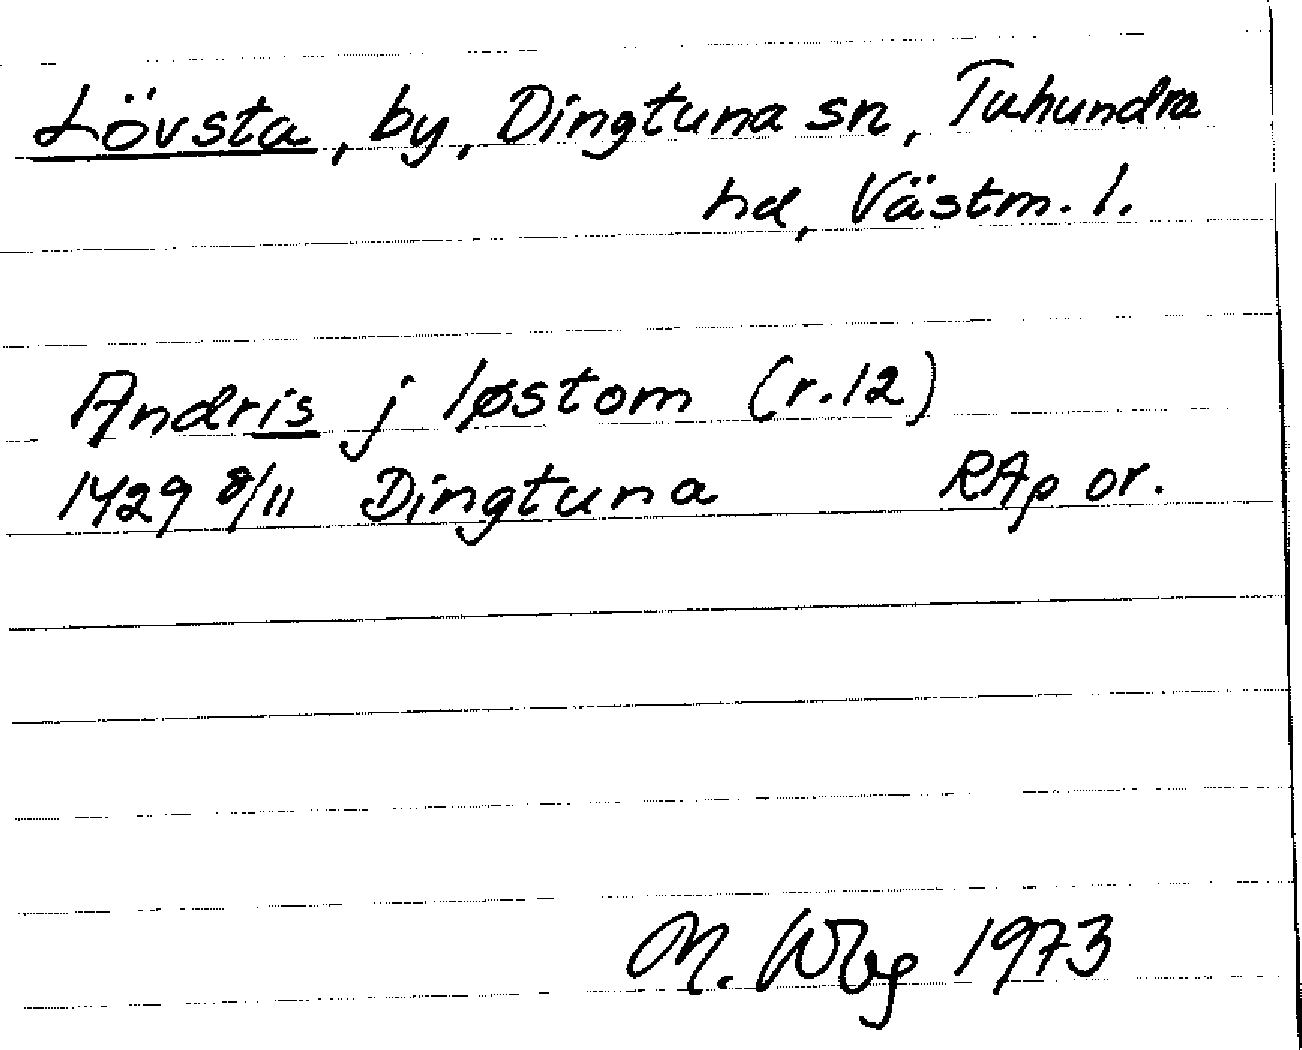 Lövsta, by, Dingtuna sn, Tuhundra
hd, Västm. l.
Andris j løstom (r.12)
1429 8/11 Dingtuna RAp or.
M. Wbg 1973